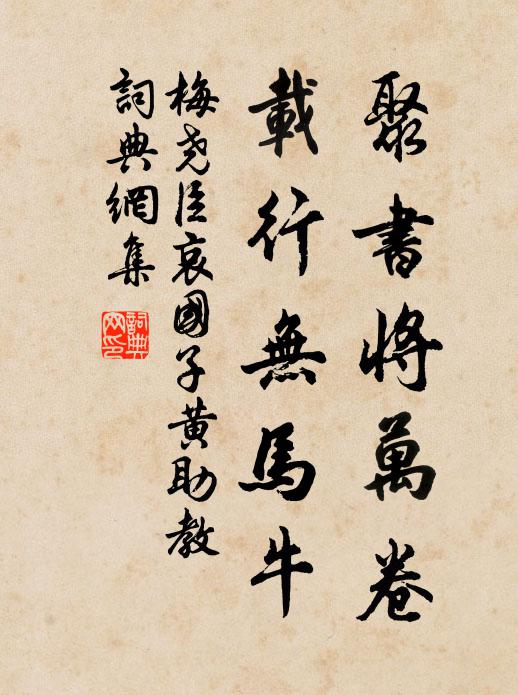 聚書將萬卷
載行無馬牛
梅堯臣哀國子黃助教
詞典網集
詞典網印